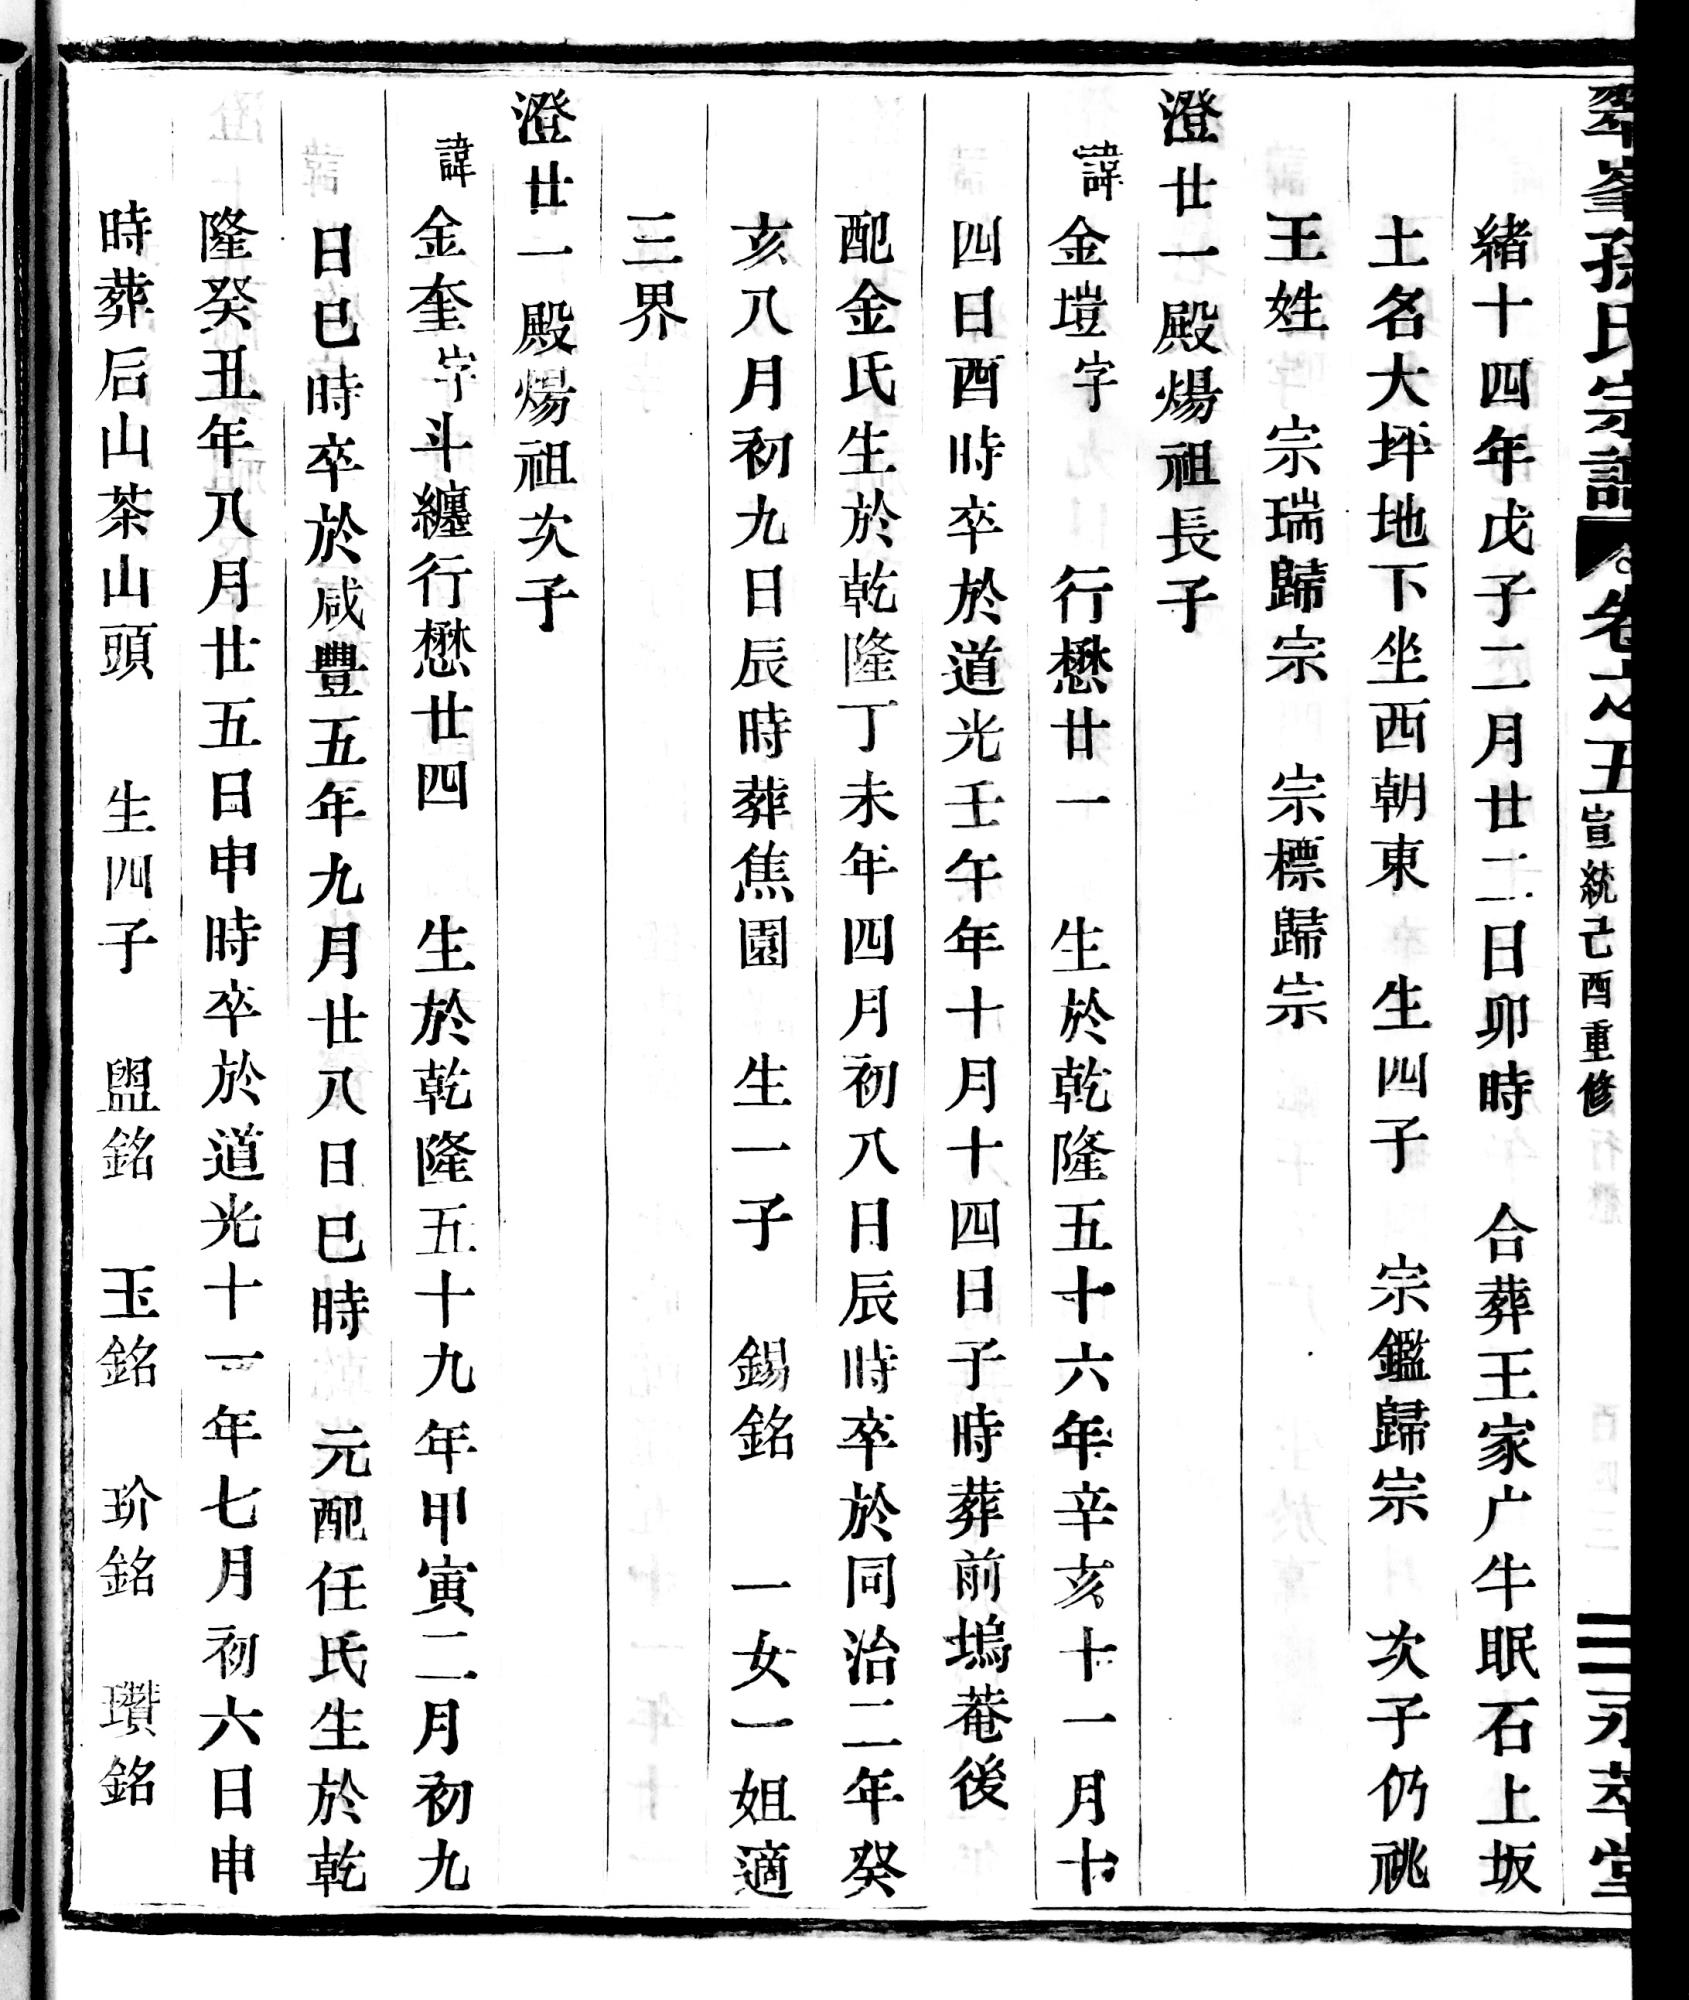 翠峯孫氏宗譜 卷之五 宣統己酉重修 永萃堂
緒十四年戊子二月廿二日卯時 合葬王家广牛眠石上坂
土名大坪地下坐西朝東 生四子 宗鑑歸宗 次子仍祧
王姓 宗瑞歸宗 宗標歸宗
澄廿一殿煬祖長子
諱金塏字 行懋廿一 生於乾隆五十六年辛亥十一月十
四日酉時卒於道光壬午年十月十四日子時葬前塢菴後
配金氏生於乾隆丁未年四月初八日辰時卒於同治二年癸
亥八月初九日辰時葬焦園 生一子 錫銘 一女一姐適
三界
澄廿一殿煬祖次子
諱金奎字斗纏行懋廿四 生於乾隆五十九年甲寅二月初九
日巳時卒於咸豐五年九月廿八日巳時 元配任氏生於乾
隆癸丑年八月廿五日申時卒於道光十一年七月初六日申
時葬后山茶山頭 生四子 盥銘 玉銘 玠銘 瓚銘